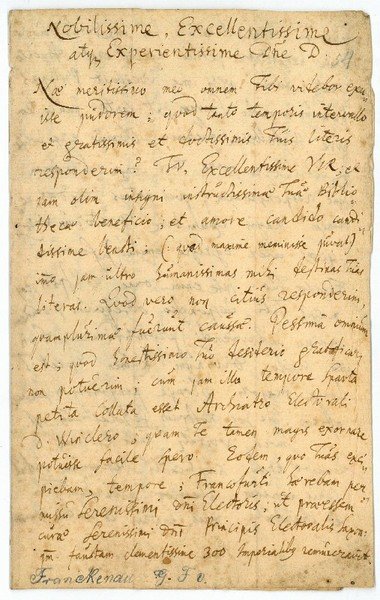 Nobilissime, Excellentissime
atq; Experientissime Dne D.
Næ meritissimo meo omnem Tibi videbor exu-
isse pudorem; quod tanto temporis intervallo
et gratissimis et doctissimis Tuis literis
responderim? Tu, Excellentissime VIR, et
jam olim insigni instructissimæ Tuæ Biblio
thecæ beneficio, et amore candido candi
dissime beasti; (: quod maxime meminisse juvat)
imo jam ultro humanissimas mihi destinas Tuas
literas. Quod vero non citius responderim,
quamplurimæ fuerunt caussæ. Pessima omnium
est; quod honestissimo Tuo desiderio gratificari
non potuerim; cum jam illo tempore
petita collata esset Archiatro Electorali
D. Winclero; quam Te tamen magis exornare
potuisse facile spero. Eodem, quo Tuas exci
piebam, tempore; Francofurti hærebam per
missu Serenissimi Dni Electoris, ut
curæ Serenissimi Dni Principis Electoralis
faustam clementissime 300 Imperialib9
Franckenau G. F. v.